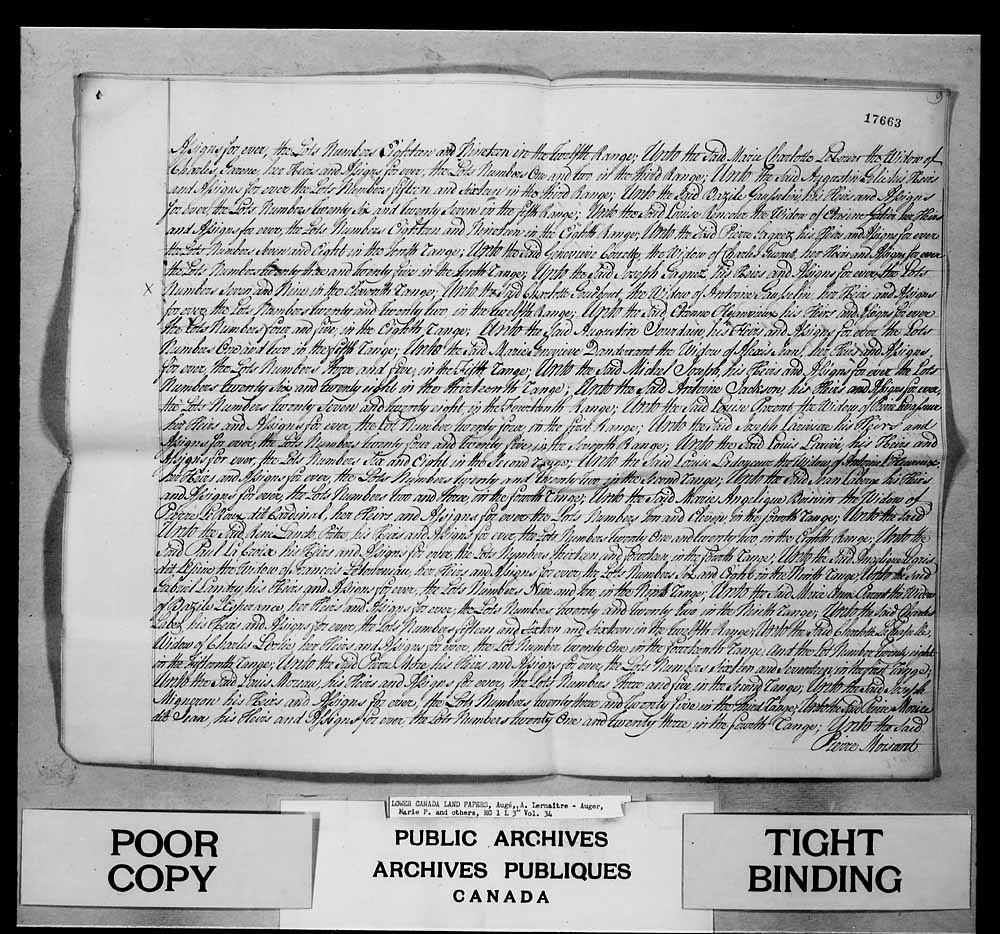 17663
Assigns for ever, the Lots Numbers Eighteen and Nineteen in the Twelfth Range; Unto the Said Marie Charlotte the Widow of
Charles her Heirs and Assigns for ever, the Lots Numbers One and two in the third Range; Unto the Said Augustin his Heirs
and Assigns for ever the Lots Numbers fifteen and Sixteen in the third Range; Unto the Said Bazile his Heirs and Assigns
for ever, the Lots Numbers twenty Six and twenty Seven in the fifth Range; Unto the Said Louise the Widow of her Heirs
and Assigns for ever, the Lots Numbers Eighteen and Nineteen in the Eighth Range; Unto the Said Pierre his Heirs and Assigns for ever
the Lots Numbers Seven and Eight in the Tenth Range; Unto the Said Genevieve the Widow of Charles her Heirs and Assigns for ever
the Lots Numbers twenty three and twenty five in the Tenth Range; Unto the Said Joseph his Heirs and Assigns for ever, the Lots
X
Numbers Seven and Nine in the Eleventh Range; Unto the Said Charlotte the Widow of Antoine her Heirs and Assigns
for ever, the Lots Numbers twenty and twenty two in the twelfth Range; Unto the Said his Heirs and Assigns for ever
the Lots Numbers four and five in the Eighth Range; Unto the Said Augustin Jourdain, his Heirs and Assigns for ever the Lots
Numbers One and two in the fifth Range; Unto the Said Marie Genevieve the Widow of her Heirs and Assigns,
for ever, the Lots Numbers three and five, in the Fifth Range; Unto the Said Michel Joseph his Heirs and Assigns for ever the Lots
Numbers twenty Six and twenty eight in the thirteenth Range; Unto the Said Antoine Jackson, his Heirs and Assigns for ever,
the Lots Numbers twenty Seven and twenty eight, in the Fourteenth Range; Unto the Said Louise Parent the Widow of Pierre
her Heirs and Assigns for ever, the Lot Number twenty four, in the first Range; Unto the Said Joseph his Heirs and
Assigns for ever, the Lots Numbers twenty four and twenty five, in the Seventh Range; Unto the Said Louis his Heirs and
Assigns for ever, the Lots Numbers Six and Eight in the Second Range; Unto the Said Louise the Widow of Antoine
her Heirs and Assigns for ever, the Lots Numbers twenty and twenty two in the Second Range; Unto the Said Jean his Heirs
and Assigns for ever, the Lots Numbers two and three, in the fourth Range; Unto the Said Marie Angelique Boisvin the Widow of
Pierre dit Cardinal her Heirs and Assigns for ever the Lots Numbers ten and Eleven, in the fourth Range; Unto the Said
Unto the Said Rene his Heirs and Assigns for ever, the Lots Numbers twenty One and twenty two, in the Eighth Range, Unto the
Said Paul La Croix his Heirs and Assigns for ever, the Lots Numbers thirteen, and fourteen, in the fourth Range; Unto the Said Angelique
dit the Widow of Francois her Heirs and Assigns for ever, the Lots Numbers Six and Eight, in the Ninth Range, Unto the Said
Gabriel Landry his Heirs and Assigns for ever, the Lots Numbers Nine and ten, in the Ninth Range; Unto the Said Marie the Widow
of Bazile Lesperance, her Heirs and Assigns for ever, the Lots Numbers twenty and twenty two in the Ninth Range; Unto the Said Charles
his Heirs and Assigns for ever, the Lots Numbers fifteen and Sixteen and Sixteen in the twelfth Range; Unto the Said Charlotte
Widow of Charles her Heirs and Assigns for ever, the Lot Number twenty One in the fourteenth Range, And the Lot Number twenty eight
in the fifteenth Range; Unto the Said Pierre his Heirs and Assigns for ever, the Lots Numbers Sixteen and Seventeen, in the first Range;
Unto the Said Louis Moreau, his Heirs and Assigns for ever, the Lots Numbers three and five, in the Second Range; Unto the Said Joseph
Migneron his Heirs and Assigns for ever, the Lots Numbers twenty three and twenty five in the third Range; Unto the Said Pierre
dit Jean his Heirs and Assigns for ever the Lots Numbers twenty One and twenty three, in the fourth Range; Unto the Said
Pierre Moisant
LOWER CANADA LAND PAPERS, Augé, A. Lemaître - Auger,
Marie P. and others, RG 1 L 3" Vol. 34
POOR
COPY
PUBLIC ARCHIVES
ARCHIVES PUBLIQUES
CANADA
TIGHT
BINDING